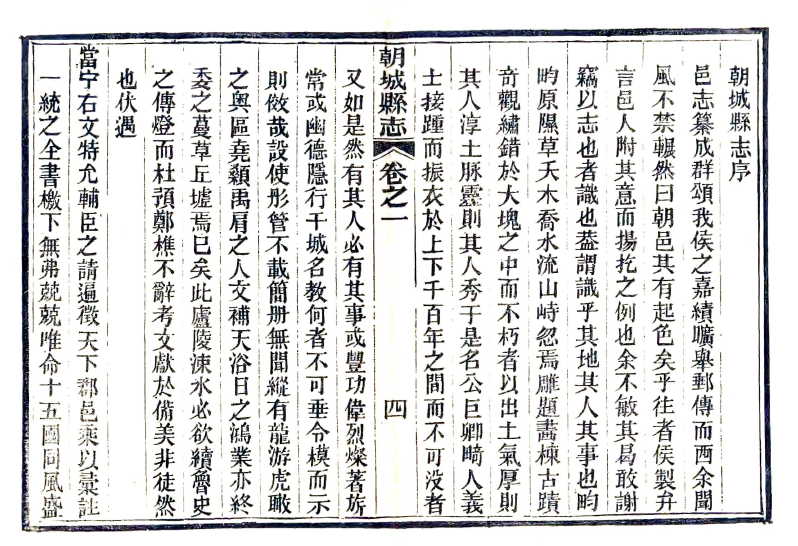 朝城縣志序
邑志纂成群頌我侯之嘉績曠舉郵傳而西余聞
風不禁輾然曰朝邑其有起色矣乎往者侯製弁
言邑人附其意而揚扢之例也余不敏其曷敢謝
竊以志也者識也葢謂識乎其地其人其事也畇
畇原隰草夭木喬水流山峙忽焉雕題畵棟古蹟
奇觀繡錯於大塊之中而不朽者以出土氣厚則
其人淳土脉靈則其人秀于是名公巨卿畸人義
士接踵而振衣於上下千百年之間而不可沒者
朝城縣志 卷之一 四
又如是然有其人必有其事或豐功偉烈燦著旂
常或幽德隱行干城名教何者不可垂令模而示
則傚哉設使彤管不載簡册無聞縱有龍游虎瞰
之奧區堯顙禹肩之人文補天浴日之鴻業亦終
委之蔓草丘墟焉已矣此廬陵涑水必欲續魯史
之傳燈而杜預鄭樵不辭考文獻於備美非徒然
也伏遇
當宁右文特允輔臣之請遍徵天下郡邑乘以彙註
一統之全書檄下無弗兢兢唯命十五國同風盛